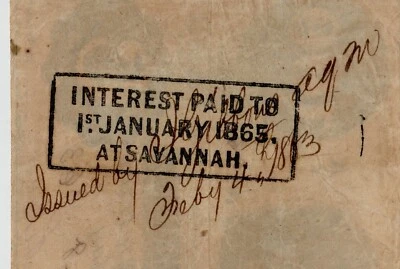 INTEREST PAID TO
1ST JANUARY 1865.
AT SAVANNAH.
Issued by
Feby 4 1863